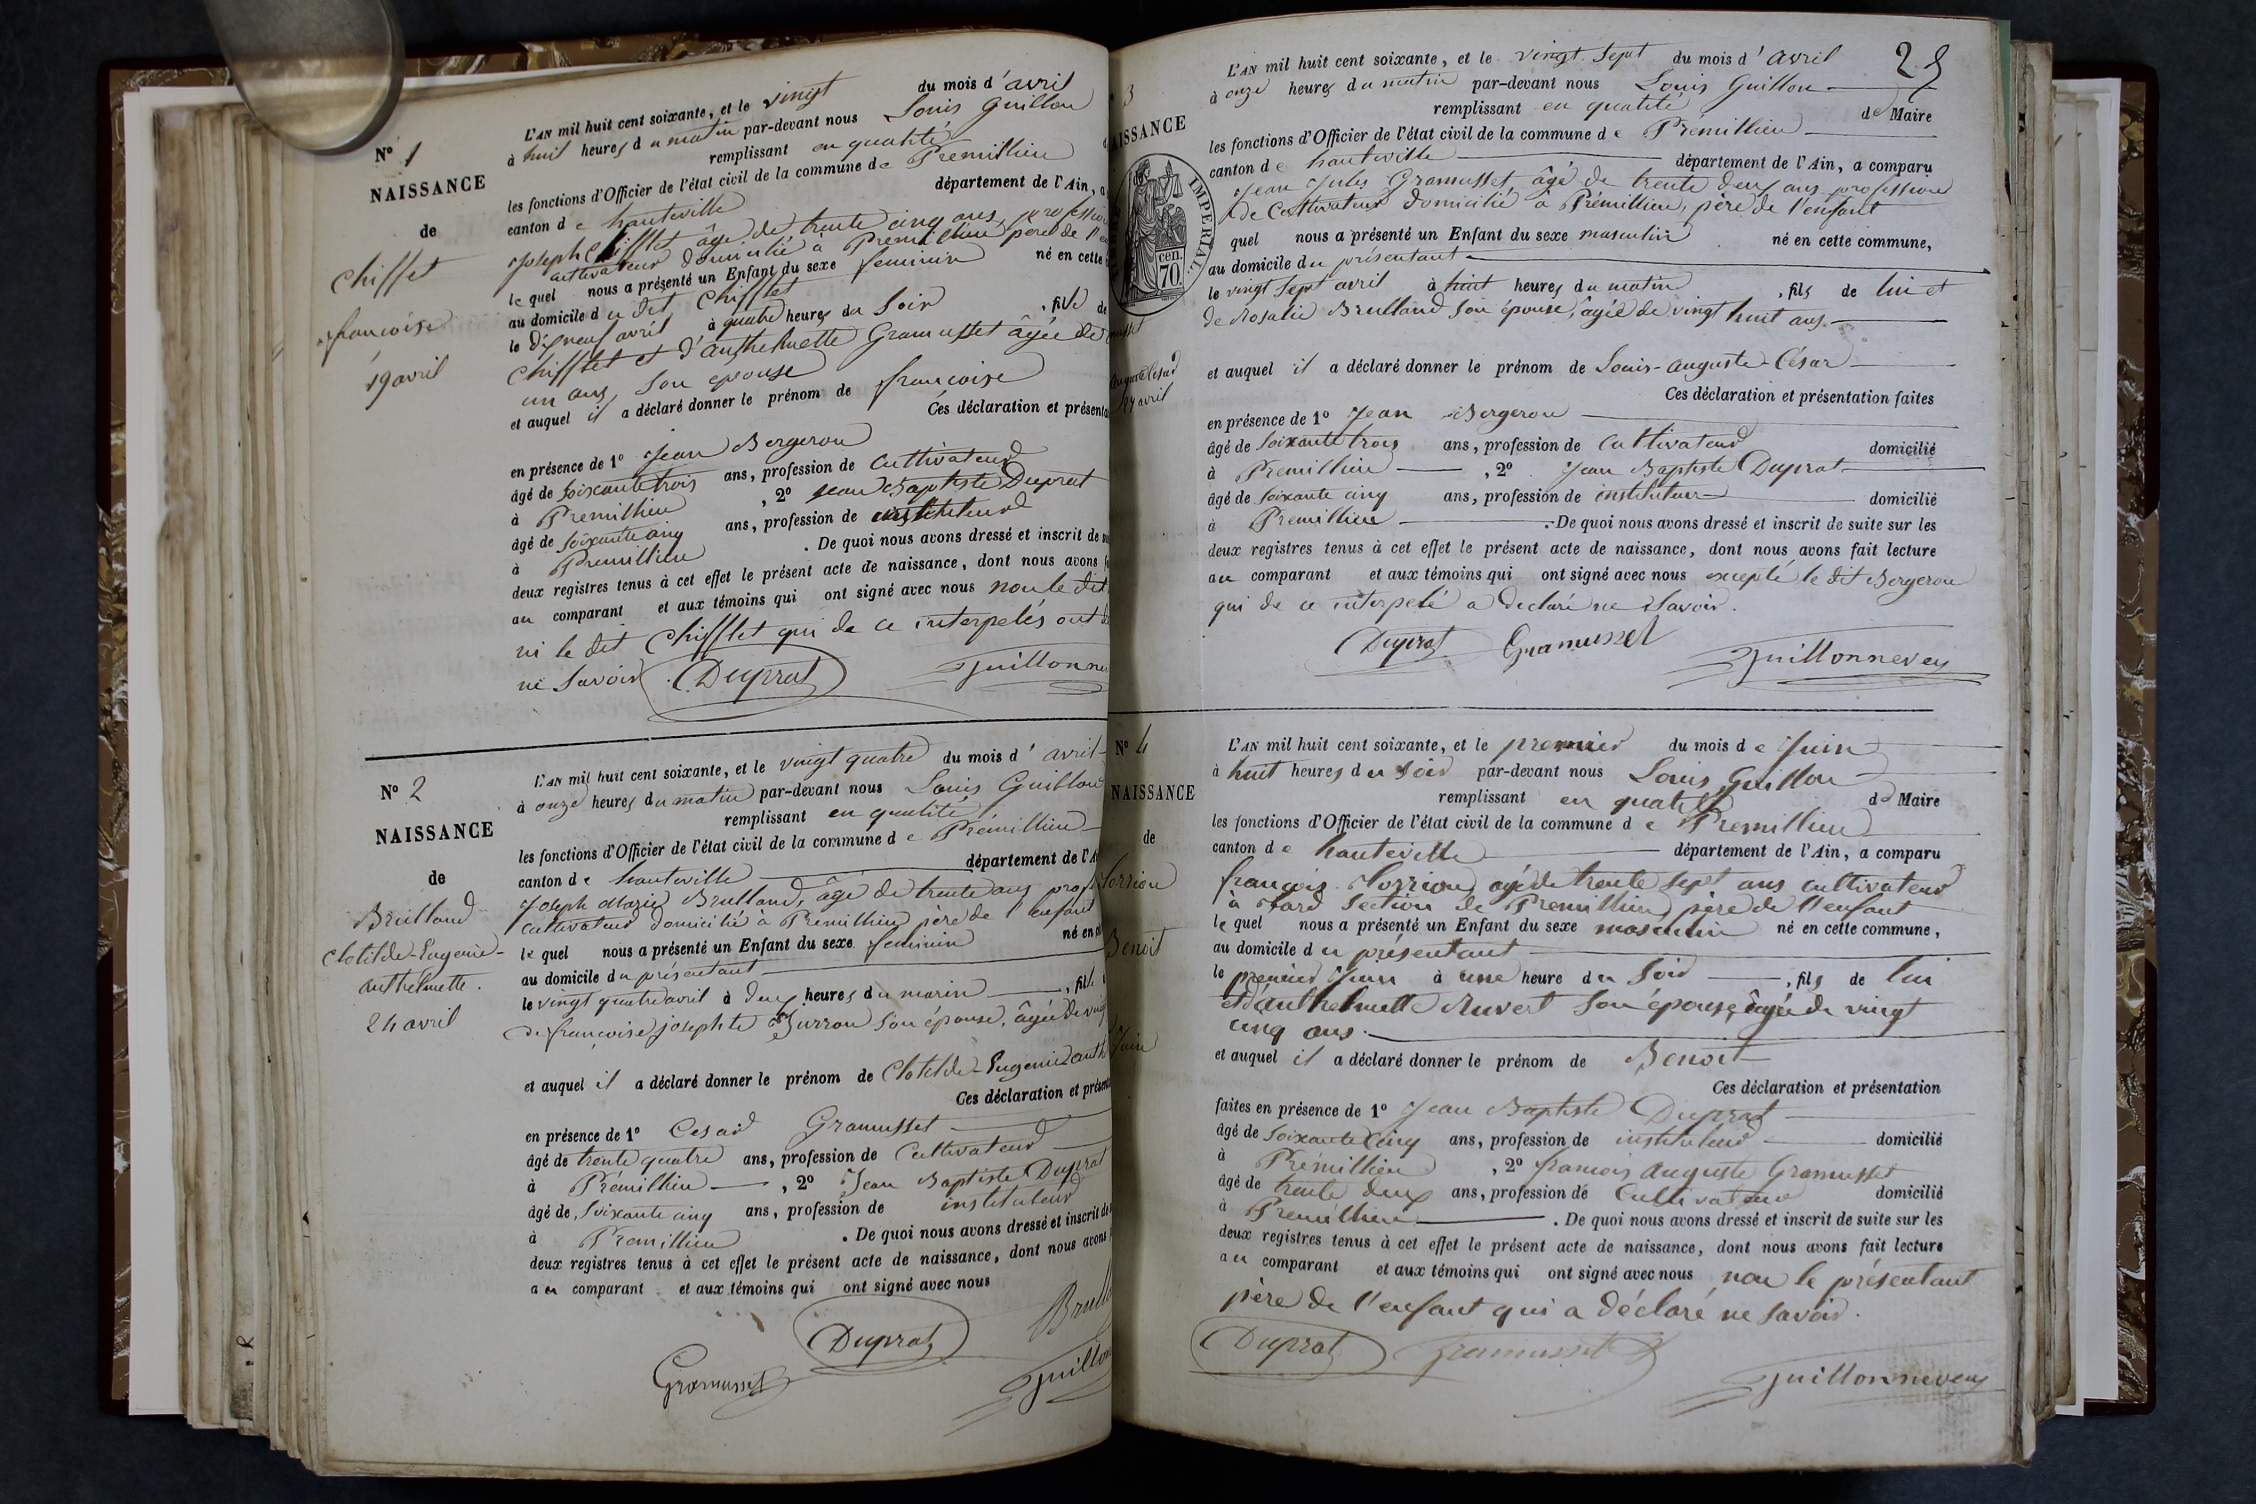 N° 1
NAISSANCE
de
Chiffet
françoise
19 avril
L'AN mil huit cent soixante, et le vingt du mois d'avril
à huit heures du matin par-devant nous Louis Guillon
remplissant en qualité
les fonctions d'Officier de l'état civil de la commune de Premillieu
canton de hauteville département de l'Ain, a
Joseph Chifflet âgé de trente cinq ans, profession
cultivateur domicilié à Premillieu père de l'en
le quel nous a présenté un Enfant du sexe feminin né en cette
au domicile du dit Chifflet
le dix neuf avril à quatre heures du Soir, fille de
Chifflet et d'anthelmette Gramusset âgée de
un ans, son épouse
et auquel il a déclaré donner le prénom de françoise
Ces déclaration et présenta
en présence de 1° Jean Bergeron
âgé de soixante trois ans, profession de Cultivateur
à Premillieu, 2° Jean Baptiste Duprat
âgé de soixante cinq ans, profession de instituteur
à Premillieu. De quoi nous avons dressé et inscrit de
deux registres tenus à cet effet le présent acte de naissance, dont nous avons
au comparant et aux témoins qui ont signé avec nous non le dit
ni le dit Chifflet qui de ce interpelés ont
ne Savoir Duprat Guillonne
N° 2
NAISSANCE
de
Brulland
Clotilde-Eugenie-
anthelmette.
24 avril
L'AN mil huit cent soixante, et le vingt quatre du mois d'avril
à onze heures du matin par-devant nous Louis Guillon
remplissant en qualité
les fonctions d'Officier de l'état civil de la commune de Prémillieu
canton de hauteville département de l'A
Joseph Marie Brulland, âgé de trente ans prof
cultivateur domicilié à Premillieu père de l'enfant
le quel nous a présenté un Enfant du sexe feminin né en
au domicile du présentant
le vingt quatre avril à deux heures du marin, fille
De françoise josephte Burron son épouse, âgée de vingt
et auquel il a déclaré donner le prénom de Clotilde-Eugenie anth
Ces déclaration et présent
en présence de 1° Cesar Gramusset
âgé de trente quatre ans, profession de Cultivateur
à Prémillieu, 2° Jean Baptiste Duprat
âgé de Soixante cinq ans, profession de instituteur
à Prémillieu. De quoi nous avons dressé et inscrit de
deux registres tenus à cet effet le présent acte de naissance, dont nous avons
au comparant et aux témoins qui ont signé avec nous
Duprat Brull
Gramusset Guillon
25
3
AISSANCE
IMPERIAL.
70. cen.
Cesar
27 avril
L'AN mil huit cent soixante, et le vingt Sept du mois d'avril
à onze heures du matin par-devant nous Louis Guillon
remplissant en qualité de Maire
les fonctions d'Officier de l'état civil de la commune de Prémillieu
canton de hauteville département de l'Ain, a comparu
Jean Jules Gramusset, âgé de trente deux ans profession
de Cultivateur domicilié à Prémillieu, père de l'enfant
quel nous a présenté un Enfant du sexe masculin né en cette commune,
au domicile du présentant
le vingt Sept avril à huit heures du matin, fils de lui et
de Rosalie Brulland son épouse, âgée de vingt huit ans.
et auquel il a déclaré donner le prénom de Louis-auguste-César
Ces déclaration et présentation faites
en présence de 1° Jean Bergeron
âgé de soixante trois ans, profession de Cultivateur domicilié
à Premillieu, 2° Jean Baptiste Duprat
âgé de soixante cinq ans, profession de instituteur domicilié
à Premillieu. De quoi nous avons dressé et inscrit de suite sur les
deux registres tenus à cet effet le présent acte de naissance, dont nous avons fait lecture
au comparant et aux témoins qui ont signé avec nous excepté le dit Bergeron
qui de ce interpelé a declaré ne Savoir.
Duprat Gramusset Guillonneveu
N° 4
NAISSANCE
de
Benoit
Juin
L'AN mil huit cent soixante, et le premier du mois de Juin
à huit heures du soir par-devant nous Louis Guillon
remplissant en qualité de Maire
les fonctions d'Officier de l'état civil de la commune de Premillieu
canton de hauteville département de l'Ain, a comparu
françois âgé de trente Sept ans cultivateur
section de Premillieu, père de l'enfant
le quel nous a présenté un Enfant du sexe masculin né en cette commune,
au domicile du présentant
le premier Juin à une heure du Soir, fils de lui
et d'anthelmette Ruvert son épouse âgée de vingt
cinq ans.
et auquel il a déclaré donner le prénom de Benoit
Ces déclaration et présentation
faites en présence de 1° Jean Baptiste Duprat
âgé de soixante cinq ans, profession de instituteur domicilié
à Prémillieu, 2° francois auguste Gramusset
âgé de trente deux ans, profession de Cultivateur domicilié
à Premillieu. De quoi nous avons dressé et inscrit de suite sur les
deux registres tenus à cet effet le présent acte de naissance, dont nous avons fait lecture
au comparant et aux témoins qui ont signé avec nous non le présentant
père de l'enfant qui a déclaré ne savoir.
Duprat Gramusset Guillonneveu